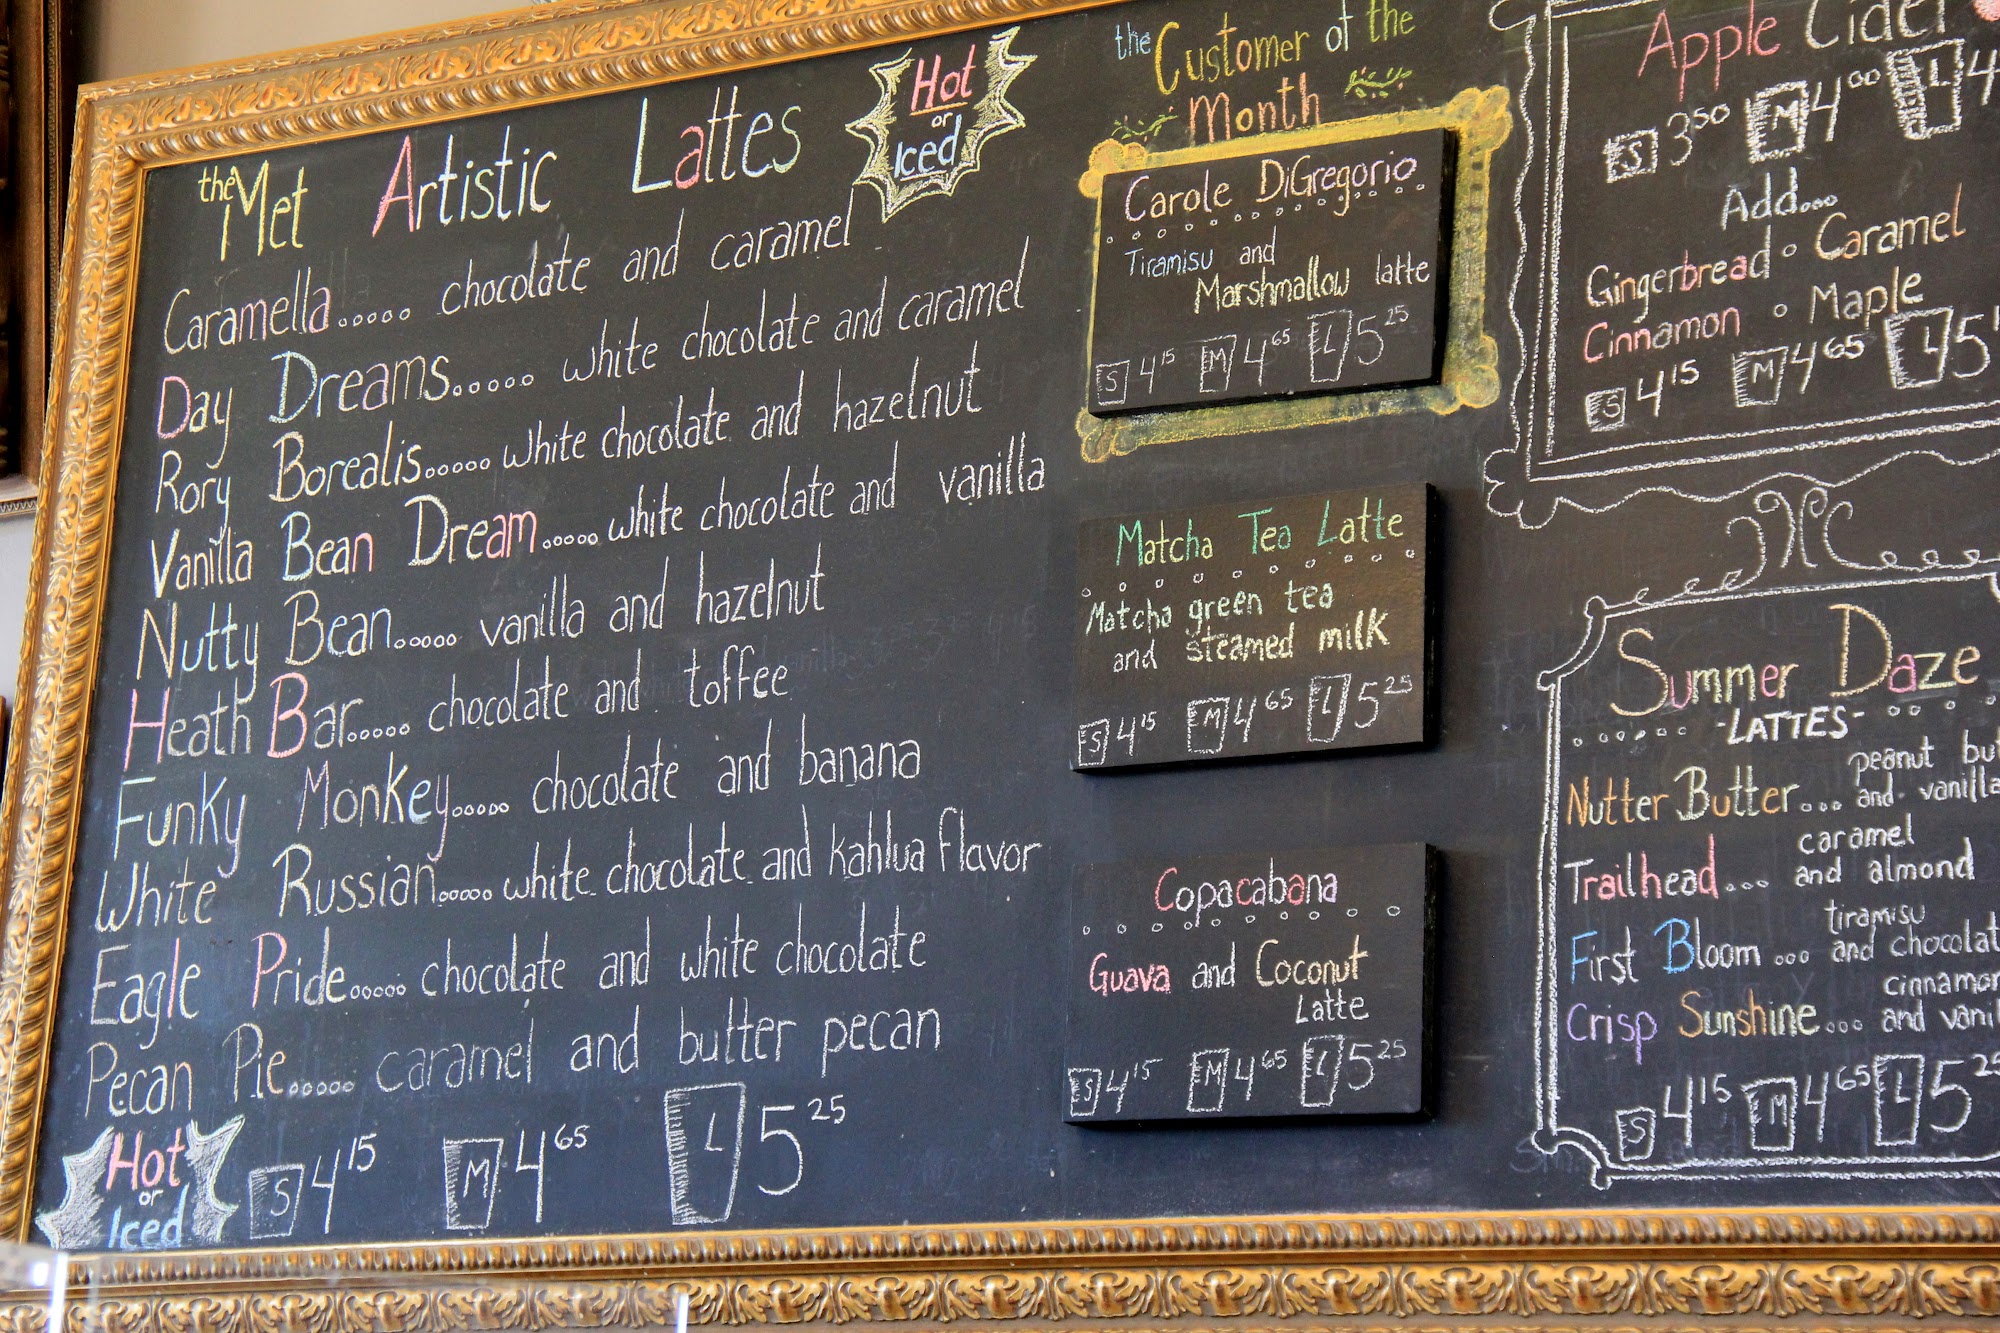 the Met Artistic Lattes
Hot
or
Iced
Caramella..... chocolate and caramel
Day Dreams..... white chocolate and caramel
Rory Borealis..... white chocolate and hazelnut
Vanilla Bean Dream..... white chocolate and vanilla
Nutty Bean..... vanilla and hazelnut
Heath Bar..... chocolate and toffee
Funky Monkey..... chocolate and banana
White Russian..... white chocolate and Kahlua flavor
Eagle Pride..... chocolate and white chocolate
Pecan Pie..... caramel and butter pecan
Hot
or
Iced
S 4 15 M 4 65 L 5 25
the Customer of the
Month
Carole DiGregorio
Tiramisu and
Marshmallow latte
S 4 15 M 4 65 L 5 25
Matcha Tea Latte
Matcha green tea
and steamed milk
S 4 15 M 4 65 L 5 25
Copacabana
Guava and Coconut
Latte
S 4 15 M 4 65 L 5 25
Apple Cider
S 3 50 M 4 00 L 4
Add...
Gingerbread • Caramel
Cinnamon • Maple
S 4 15 M 4 65 L 5
Summer Daze
-LATTES-
peanut
Nutter Butter... and vanilla
caramel
Trailhead... and almond
tiramisu
First Bloom... and chocolat
cinnamon
Crisp Sunshine... and vani
S 4 15 M 4 65 L 5 25